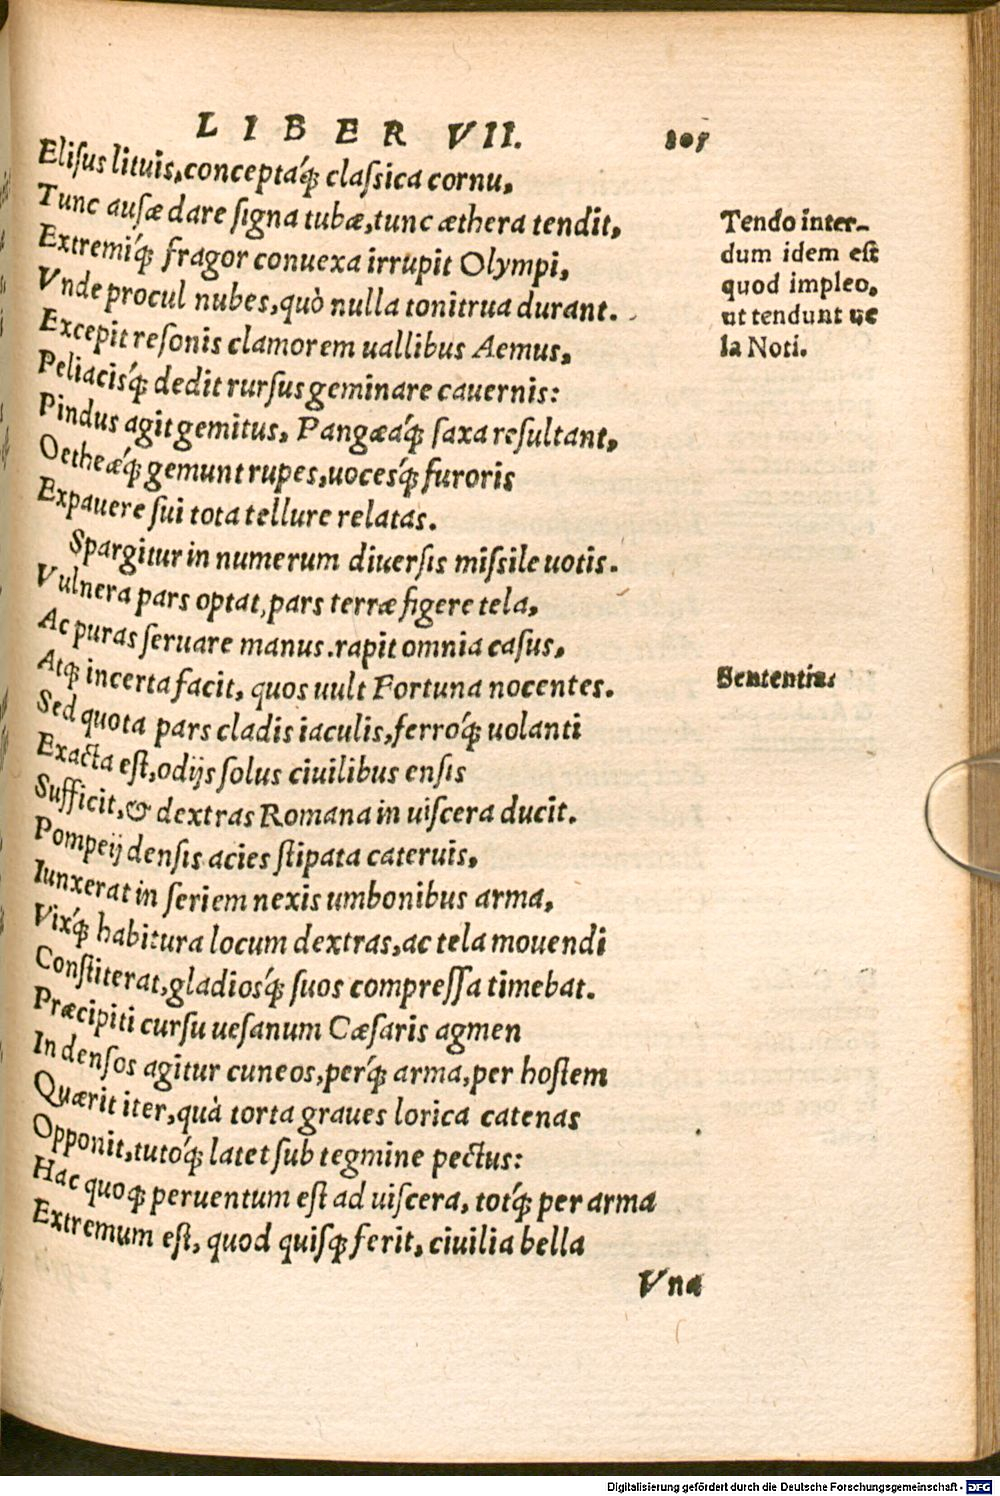 LIBER VII. 305
Elisus lituis, conceptáq́; classica cornu,
Tunc ausæ dare signa tubæ, tunc æthera tendit,
Extremiq́; fragor conuexa irrupit Olympi,
Vnde procul nubes, quò nulla tonitrua durant.
Excepit resonis clamorem uallibus Aemus,
Peliacisq́; dedit rursus geminare cauernis:
Pindus agit gemitus, Pangæáq́; saxa resultant,
Oetheæq́; gemunt rupes, uocesq́; furoris
Expauere sui tota tellure relatas.
Spargitur in numerum diuersis missile uotis.
Vulnera pars optat, pars terræ figere tela,
Ac puras seruare manus. rapit omnia casus,
Atq; incerta facit, quos uult Fortuna nocentes.
Sed quota pars cladis iaculis, ferróq́; uolanti
Exacta est, odijs solus ciuilibus ensis
Sufficit, & dextras Romana in uiscera ducit.
Pompeij densis acies stipata cateruis,
Iunxerat in seriem nexis umbonibus arma,
Vixq́; habitura locum dextras, ac tela mouendi
Constiterat, gladiosq́; suos compressa timebat.
Præcipiti cursu uesanum Cæsaris agmen
In densos agitur cuneos, perq́; arma, per hostem
Quærit iter, quà torta graues lorica catenas
Opponit, tutóq́; latet sub tegmine pectus:
Hac quoq; peruentum est ad uiscera, totq́; per arma
Extremum est, quod quisq; ferit, ciuilia bella
Vna
Tendo inter-
dum idem est
quod impleo,
ut tendunt ue
la Noti.
Sententia:
Digitalisierung gefördert durch die Deutsche Forschungsgemeinschaft - DFG